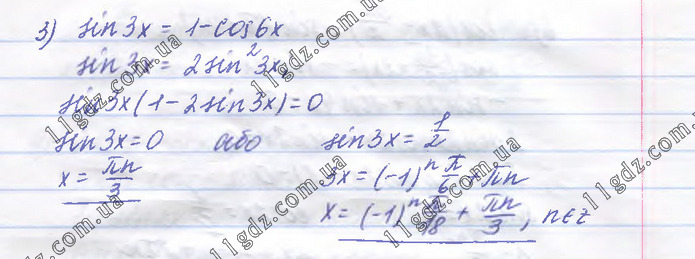 3) sin3x = 1-cos6x
sin3x = 2sin²3x
sin3x(1-2sin3x)=0
sin3x=0 або sin3x= 1/2
x = πn/3 3x = (-1)ⁿ π/6 + πn
x = (-1)ⁿ π/18 + πn/3, n∈Z
11gdz.com.ua
11gdz.com.ua
11gdz.com.ua
11gdz.com.ua
11gdz.com.ua